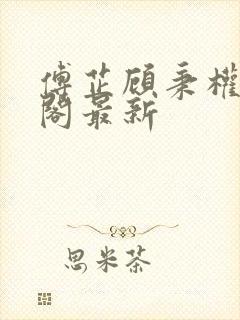 傅芷顾秉權
阁最新
思米茶